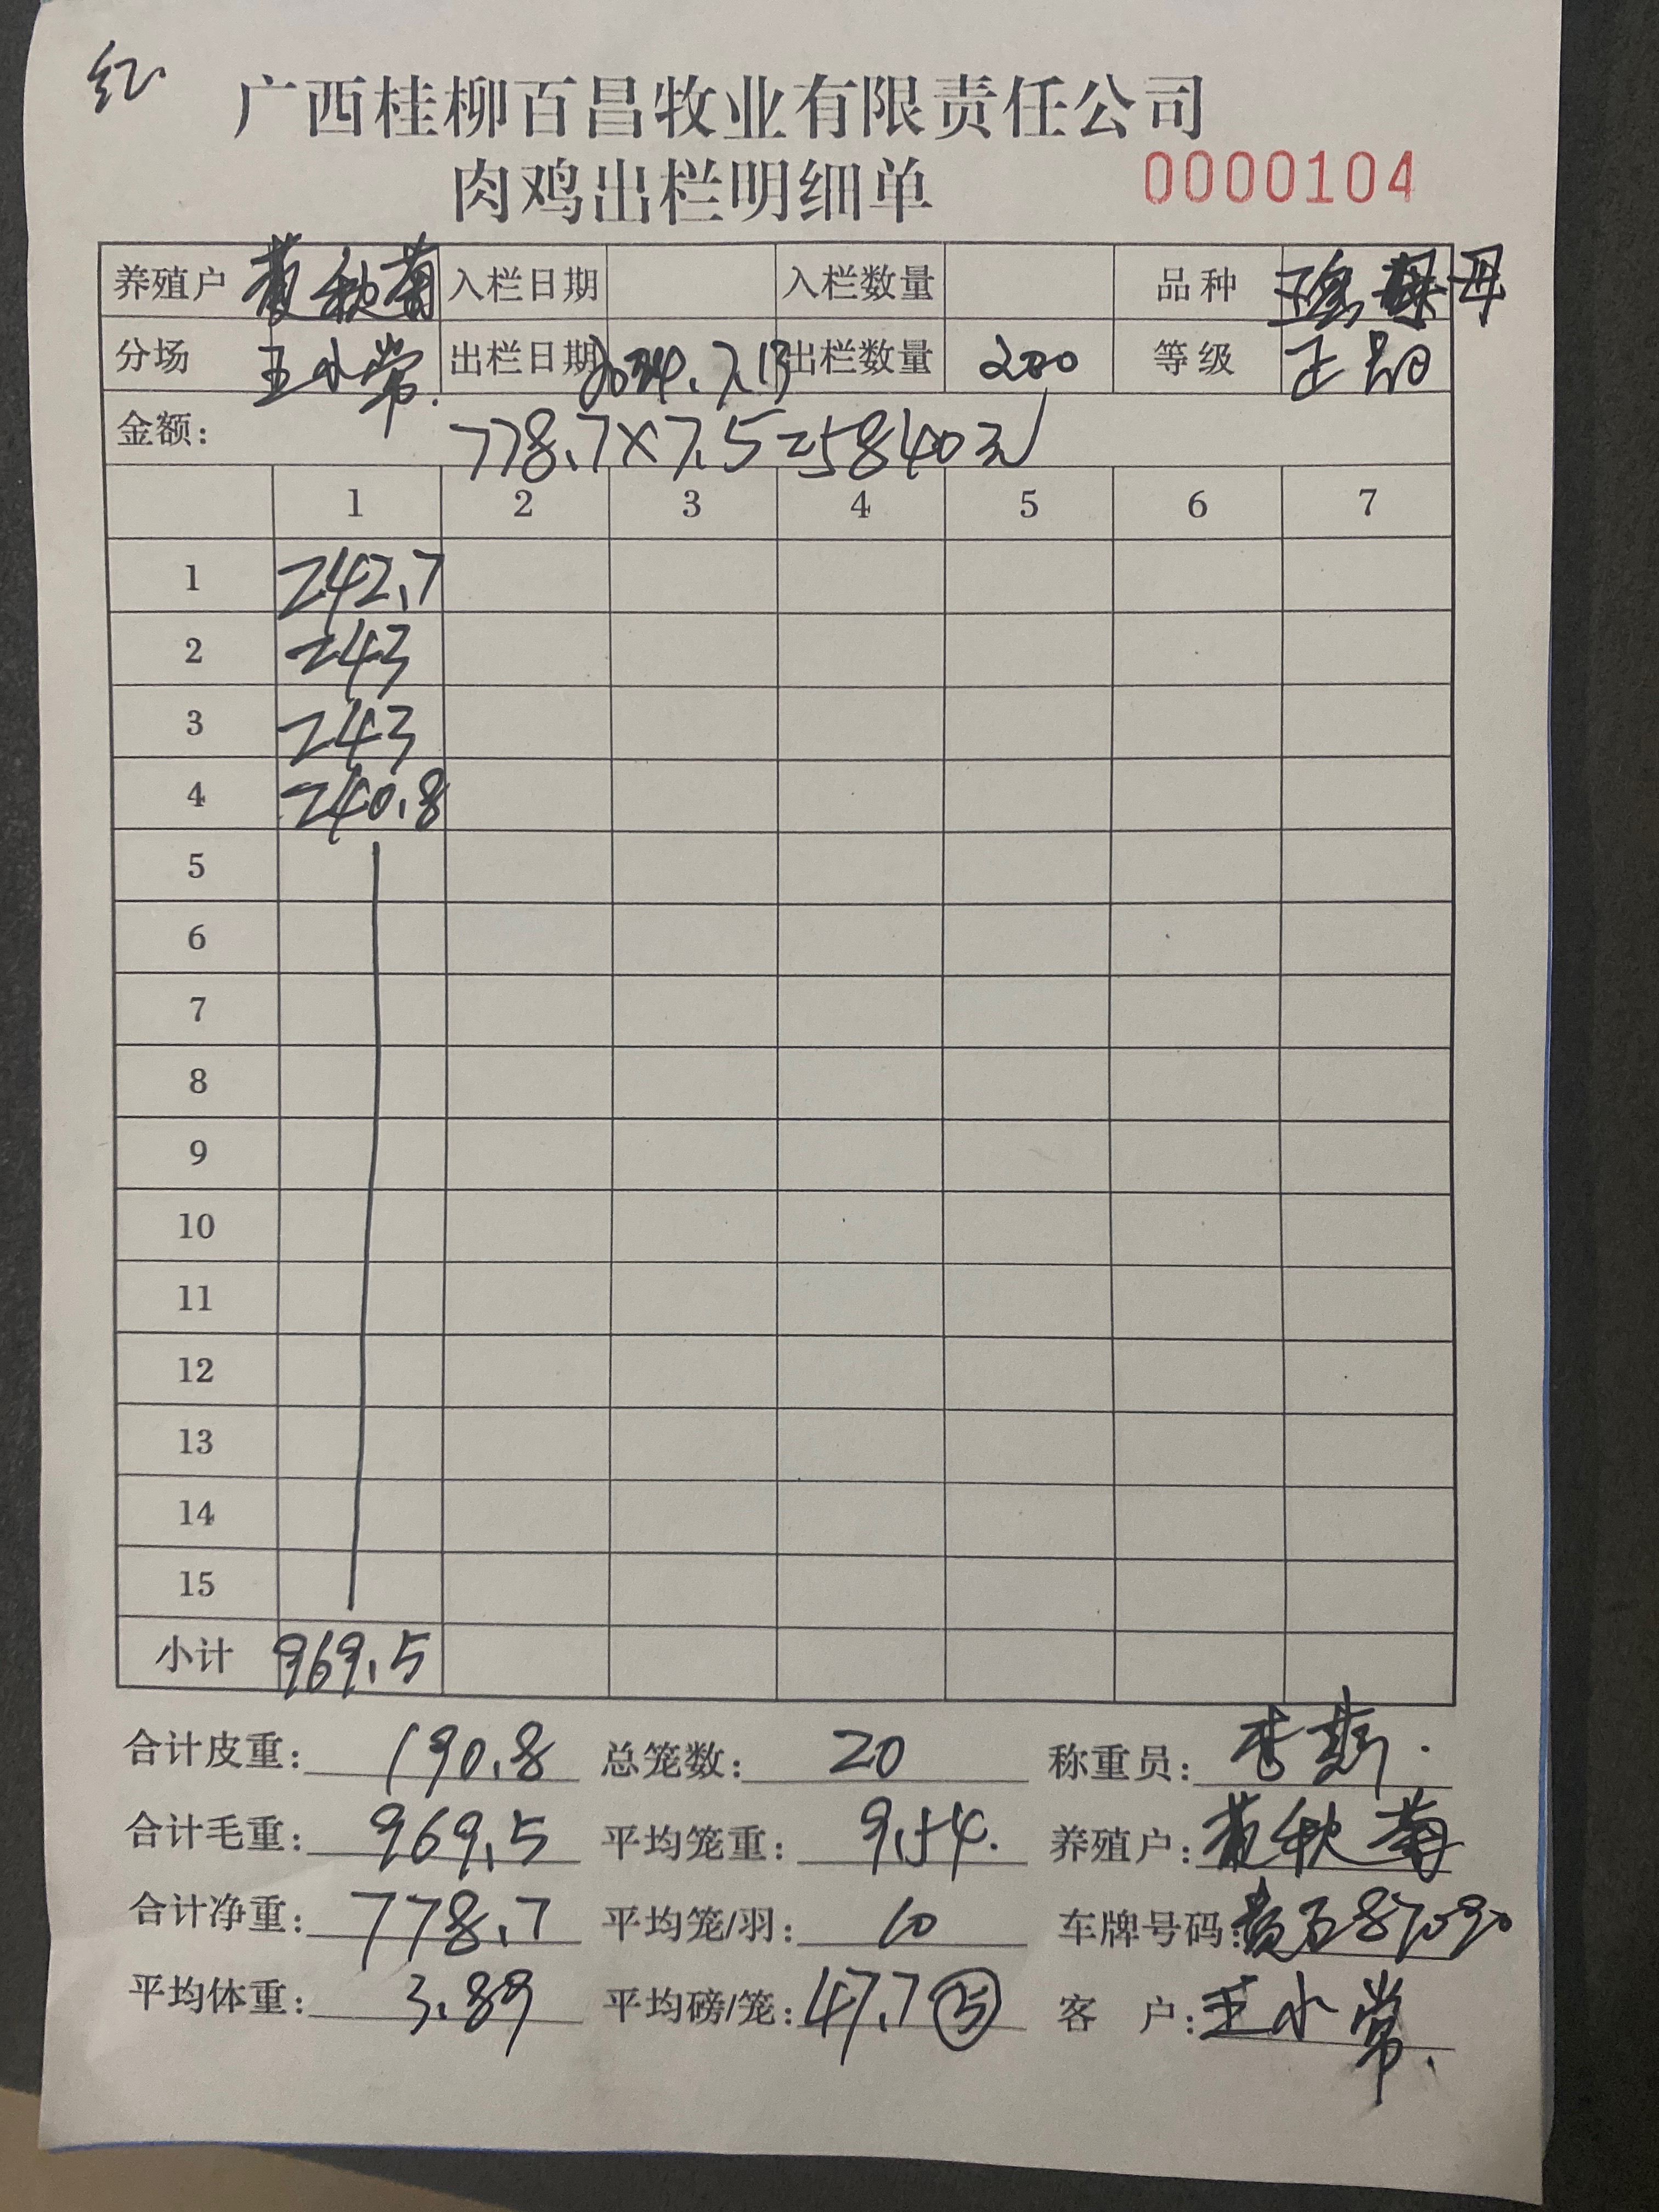 红
广西桂柳百昌牧业有限责任公司
肉鸡出栏明细单 0000104
养殖户 黄秋菊 入栏日期 入栏数量 品种
分场 王小常. 出栏日期 2024.7.13 出栏数量 200 等级 正品
金额: 778.7×7.5=5840元
1 2 3 4 5 6 7
1 242.7
2 243
3 243
4 240.8
5
6
7
8
9
10
11
12
13
14
15
小计 969.5
合计皮重: 190.8 总笼数: 20 称重员: 李
合计毛重: 969.5 平均笼重: 9.54. 养殖户: 黄秋菊
合计净重: 778.7 平均笼/羽: 10 车牌号码:
平均体重: 3.89 平均磅/笼: 47.7 ⑤ 客 户: 王小常.